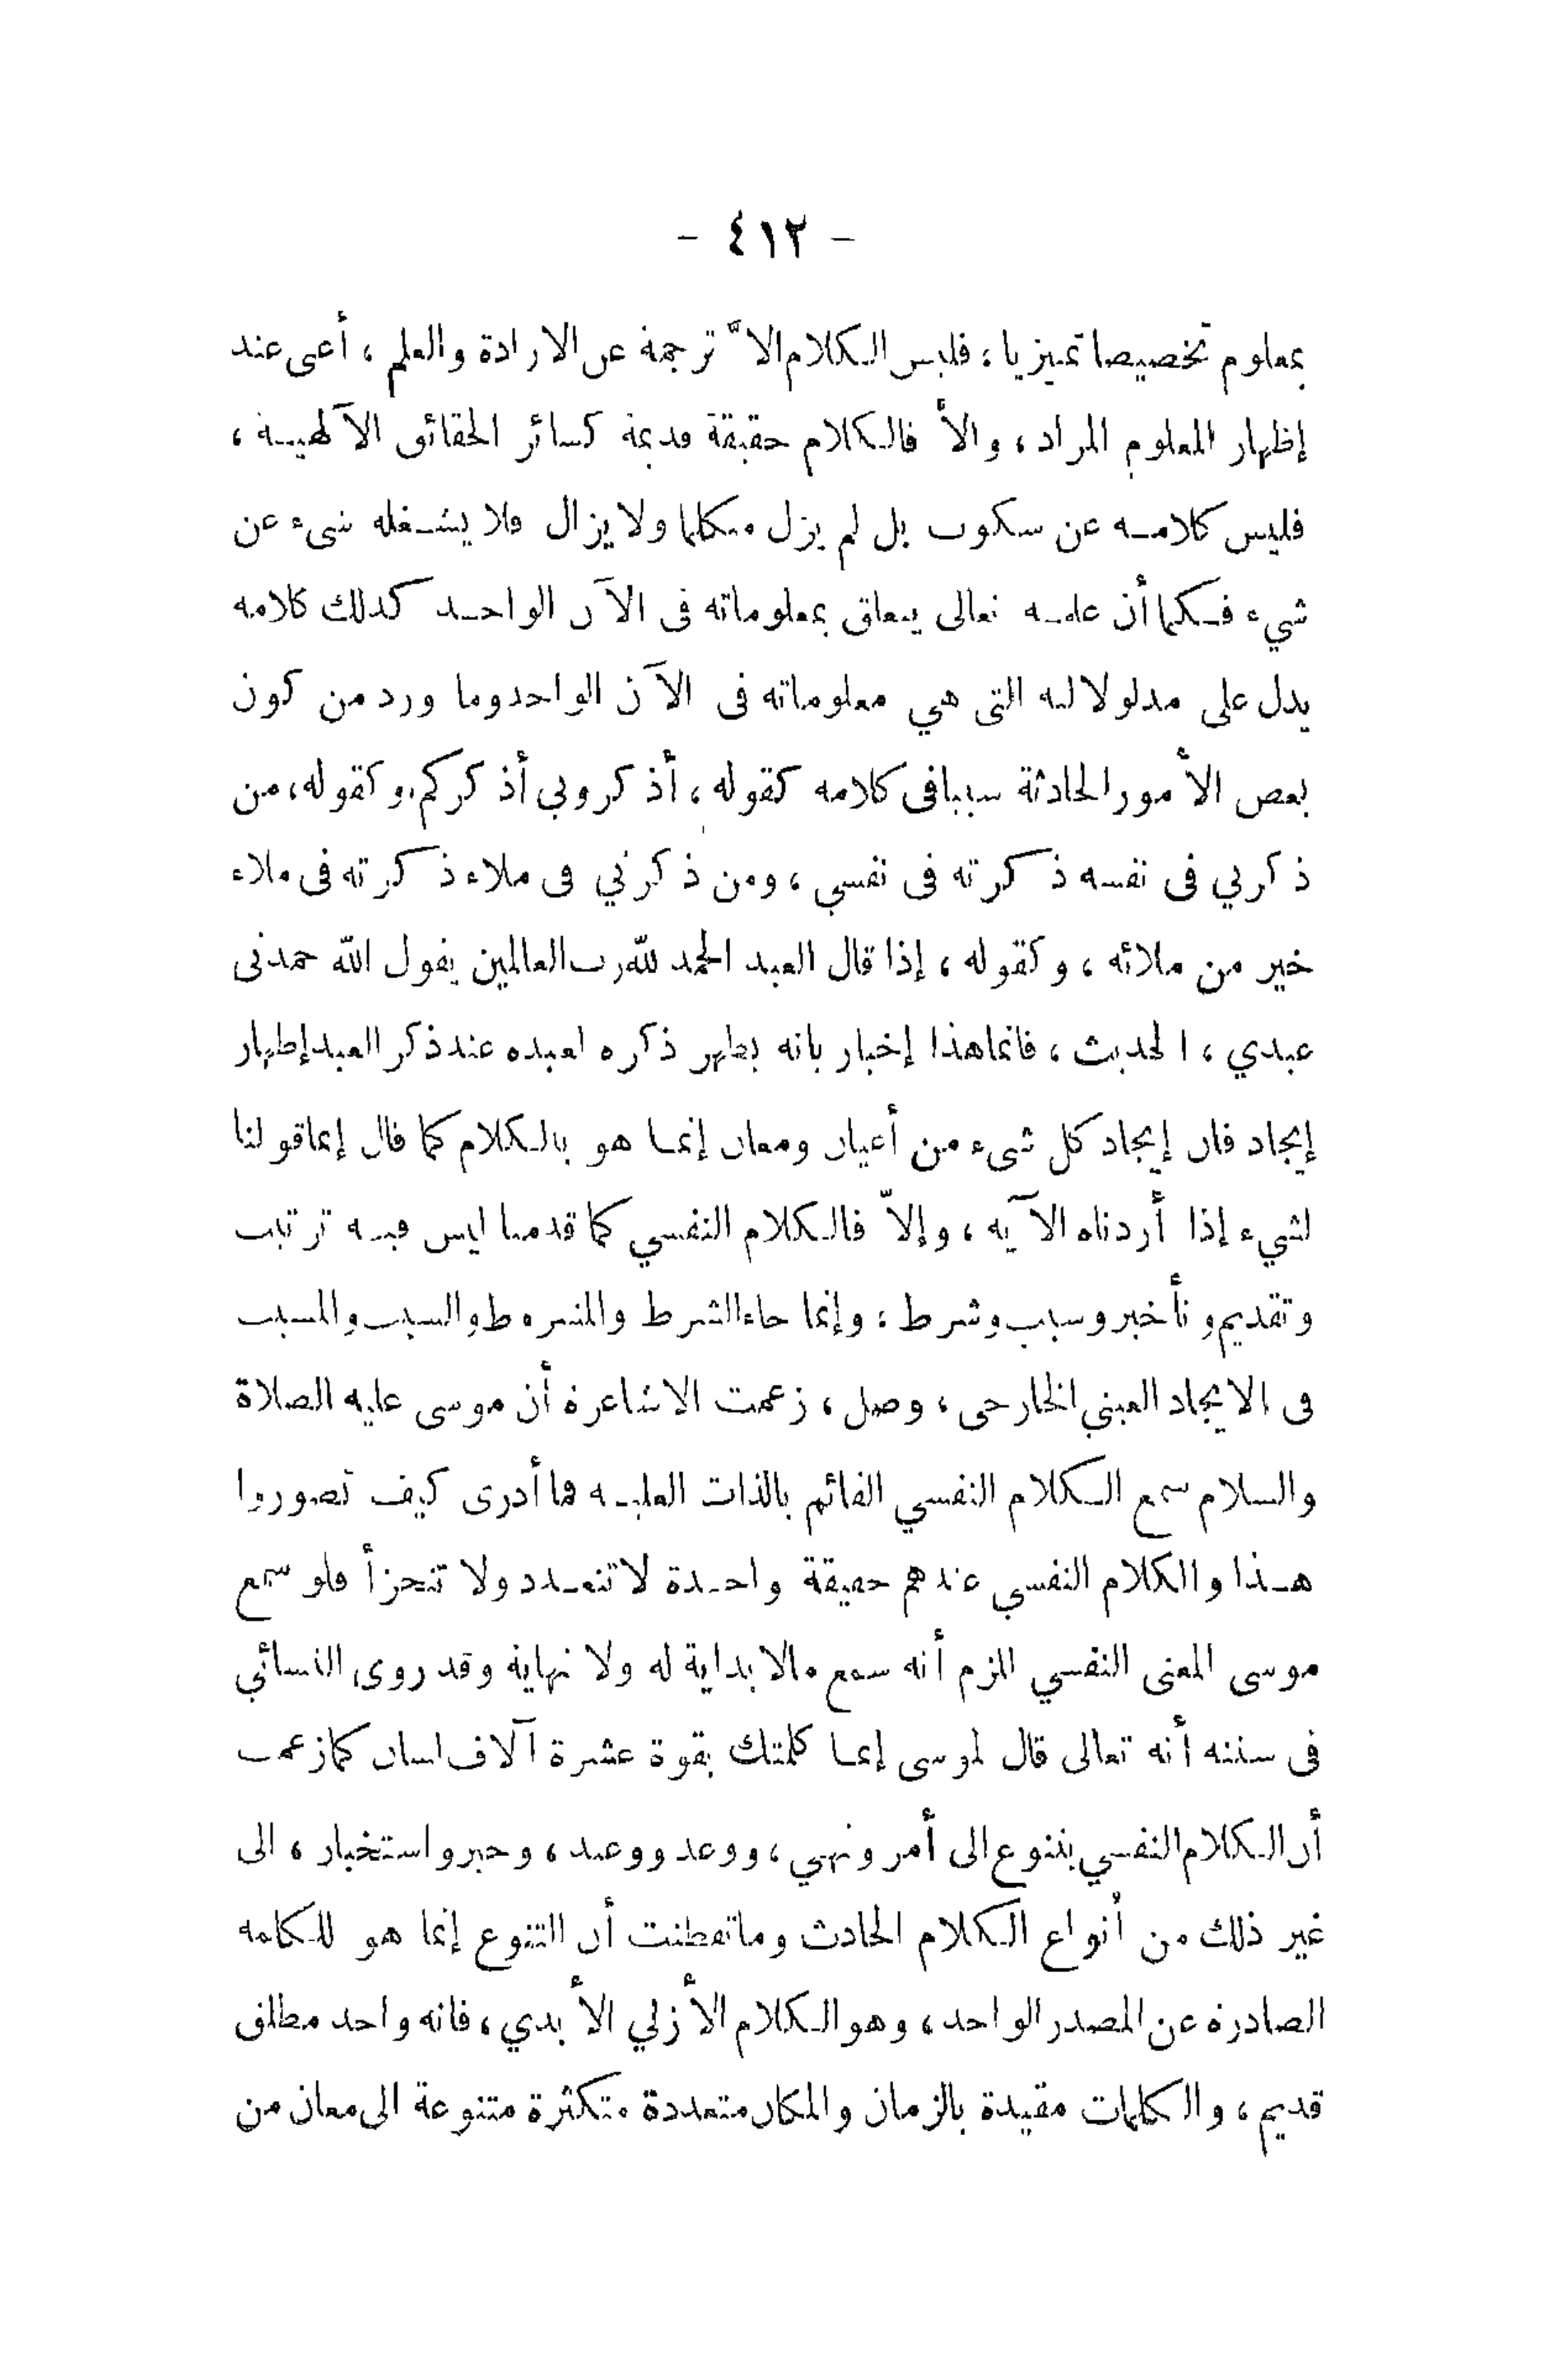 - ٤١٢ -
بمعلوم تخصيصا تمييزيا ، فليس الكلام الاّ ترجمة عن الارادة والعلم ، أعنى عند
إظهار المعلوم المراد ، والأ فالكلام حقيقة قديمة كسائر الحقائق الآلهية ،
فليس كلامه عن سكوت بل لم يزل متكلما ولا يزال فلا يشغله شىء عن
شيء فكما أن علمه تعالى يتعلق بمعلوماته فى الآن الواحد كذلك كلامه
يدل على مدلولاته التى هي معلوماته فى الآن الواحد وما ورد من كون
بعض الأمور الحادثة سببا فى كلامه كقوله ، أذكرونى أذكركم ، وكقوله ، من
ذكرني فى نفسه ذكرته فى نفسي ، ومن ذكرني فى ملاء ذكرته فى ملاء
خير من ملائه ، وكقوله ، إذا قال العبد الحمد للّه رب العالمين يقول اللّه حمدنى
عبدي ، الحديث ، فانما هذا إخبار بانه يظهر ذكره لعبده عند ذكر العبد إظهار
إيجاد فان إيجاد كل شىء من أعيان ومعان إنما هو بالكلام كما قال إنما قولنا
لشيء إذا أردناه الآيه ، وإلاّ فالكلام النفسي كما قدمنا ليس فيه ترتيب
وتقديم وتأخير وسبب وشرط ، وإنما جاء الشرط والمشروط والسبب والمسبب
فى الايجاد العينى الخارجى ، وصل ، زعمت الاشاعرة أن موسى عليه الصلاة
والسلام سمع الكلام النفسي القائم بالذات العلية فما أدرى كيف تصوروا
هذا والكلام النفسي عندهم حقيقة واحدة لا تتعدد ولا تتجزأ فلو سمع
موسى المعنى النفسي للزم أنه سمع مالا بداية له ولا نهاية وقد روى النسائي
فى سننه أنه تعالى قال لموسى إنما كلمتك بقوة عشرة آلاف لسان كما زعمت
أن الكلام النفسي يتنوع الى أمر ونهي ، ووعد ووعيد ، وخبر واستخبار ، الى
غير ذلك من أنواع الكلام الحادث وما تفطنت أن التنوع إنما هو للكلمه
الصادرة عن المصدر الواحد ، وهو الكلام الأزلي الأبدي ، فانه واحد مطلق
قديم ، والكلمات مقيدة بالزمان والمكان متعددة متكثرة متنوعة الى معان من